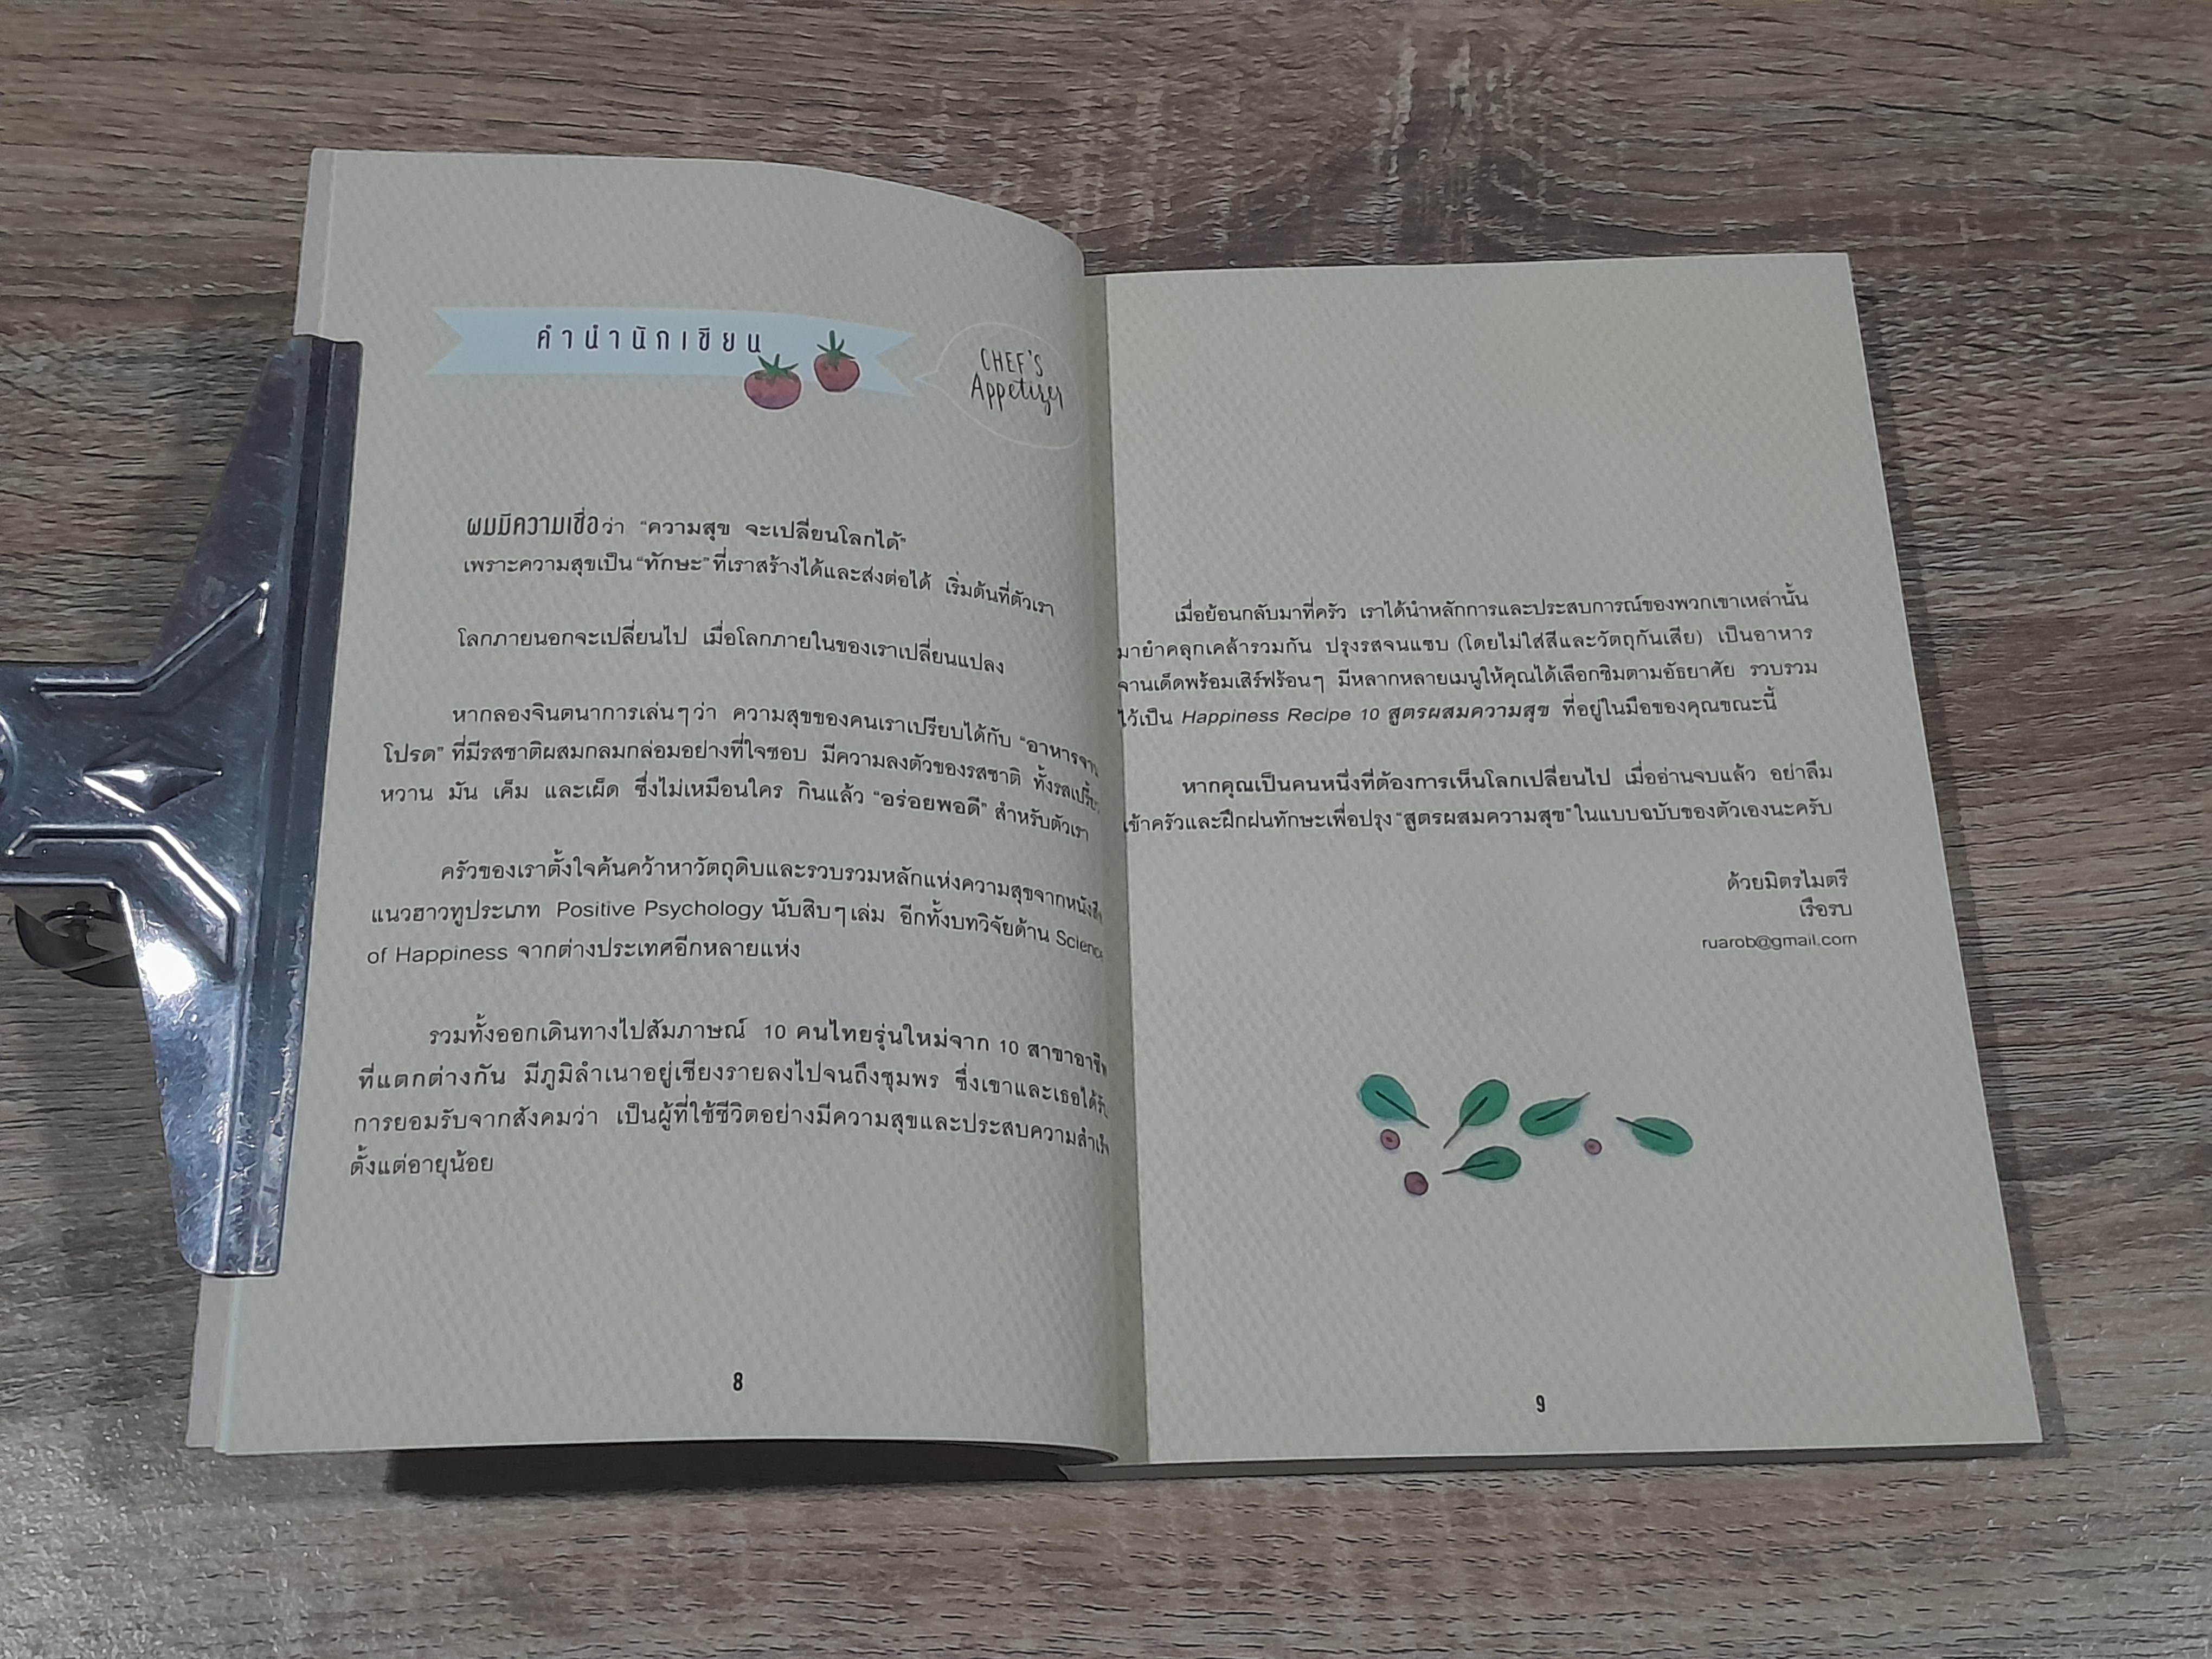 คำนำนักเขียน
CHEF'S
Appetizer
ผมมีความเชื่อว่า "ความสุข จะเปลี่ยนโลกได้"
เพราะความสุขเป็น "ทักษะ" ที่เราสร้างได้และส่งต่อได้ เริ่มต้นที่ตัวเรา
โลกภายนอกจะเปลี่ยนไป เมื่อโลกภายในของเราเปลี่ยนแปลง
หากลองจินตนาการเล่นๆว่า ความสุขของคนเราเปรียบได้กับ "อาหารจาน
โปรด" ที่มีรสชาติผสมกลมกล่อมอย่างที่ใจชอบ มีความลงตัวของรสชาติ ทั้งรสเปรี้ยว
หวาน มัน เค็ม และเผ็ด ซึ่งไม่เหมือนใคร กินแล้ว "อร่อยพอดี" สำหรับตัวเรา
ครัวของเราตั้งใจค้นคว้าหาวัตถุดิบและรวบรวมหลักแห่งความสุขจากหนังสือ
แนวฮาวทูประเภท Positive Psychology นับสิบๆเล่ม อีกทั้งบทวิจัยด้าน Science
of Happiness จากต่างประเทศอีกหลายแห่ง
รวมทั้งออกเดินทางไปสัมภาษณ์ 10 คนไทยรุ่นใหม่จาก 10 สาขาอาชีพ
ที่แตกต่างกัน มีภูมิลำเนาอยู่เชียงรายลงไปจนถึงชุมพร ซึ่งเขาและเธอได้รับ
การยอมรับจากสังคมว่า เป็นผู้ที่ใช้ชีวิตอย่างมีความสุขและประสบความสำเร็จ
ตั้งแต่อายุน้อย
8
เมื่อย้อนกลับมาที่ครัว เราได้นำหลักการและประสบการณ์ของพวกเขาเหล่านั้น
มายำคลุกเคล้ารวมกัน ปรุงรสจนแซบ (โดยไม่ใส่สีและวัตถุกันเสีย) เป็นอาหาร
จานเด็ดพร้อมเสิร์ฟร้อนๆ มีหลากหลายเมนูให้คุณได้เลือกชิมตามอัธยาศัย รวบรวม
ไว้เป็น Happiness Recipe 10 สูตรผสมความสุข ที่อยู่ในมือของคุณขณะนี้
หากคุณเป็นคนหนึ่งที่ต้องการเห็นโลกเปลี่ยนไป เมื่ออ่านจบแล้ว อย่าลืม
เข้าครัวและฝึกฝนทักษะเพื่อปรุง "สูตรผสมความสุข" ในแบบฉบับของตัวเองนะครับ
ด้วยมิตรไมตรี
เรือรบ
ruarob@gmail.com
9